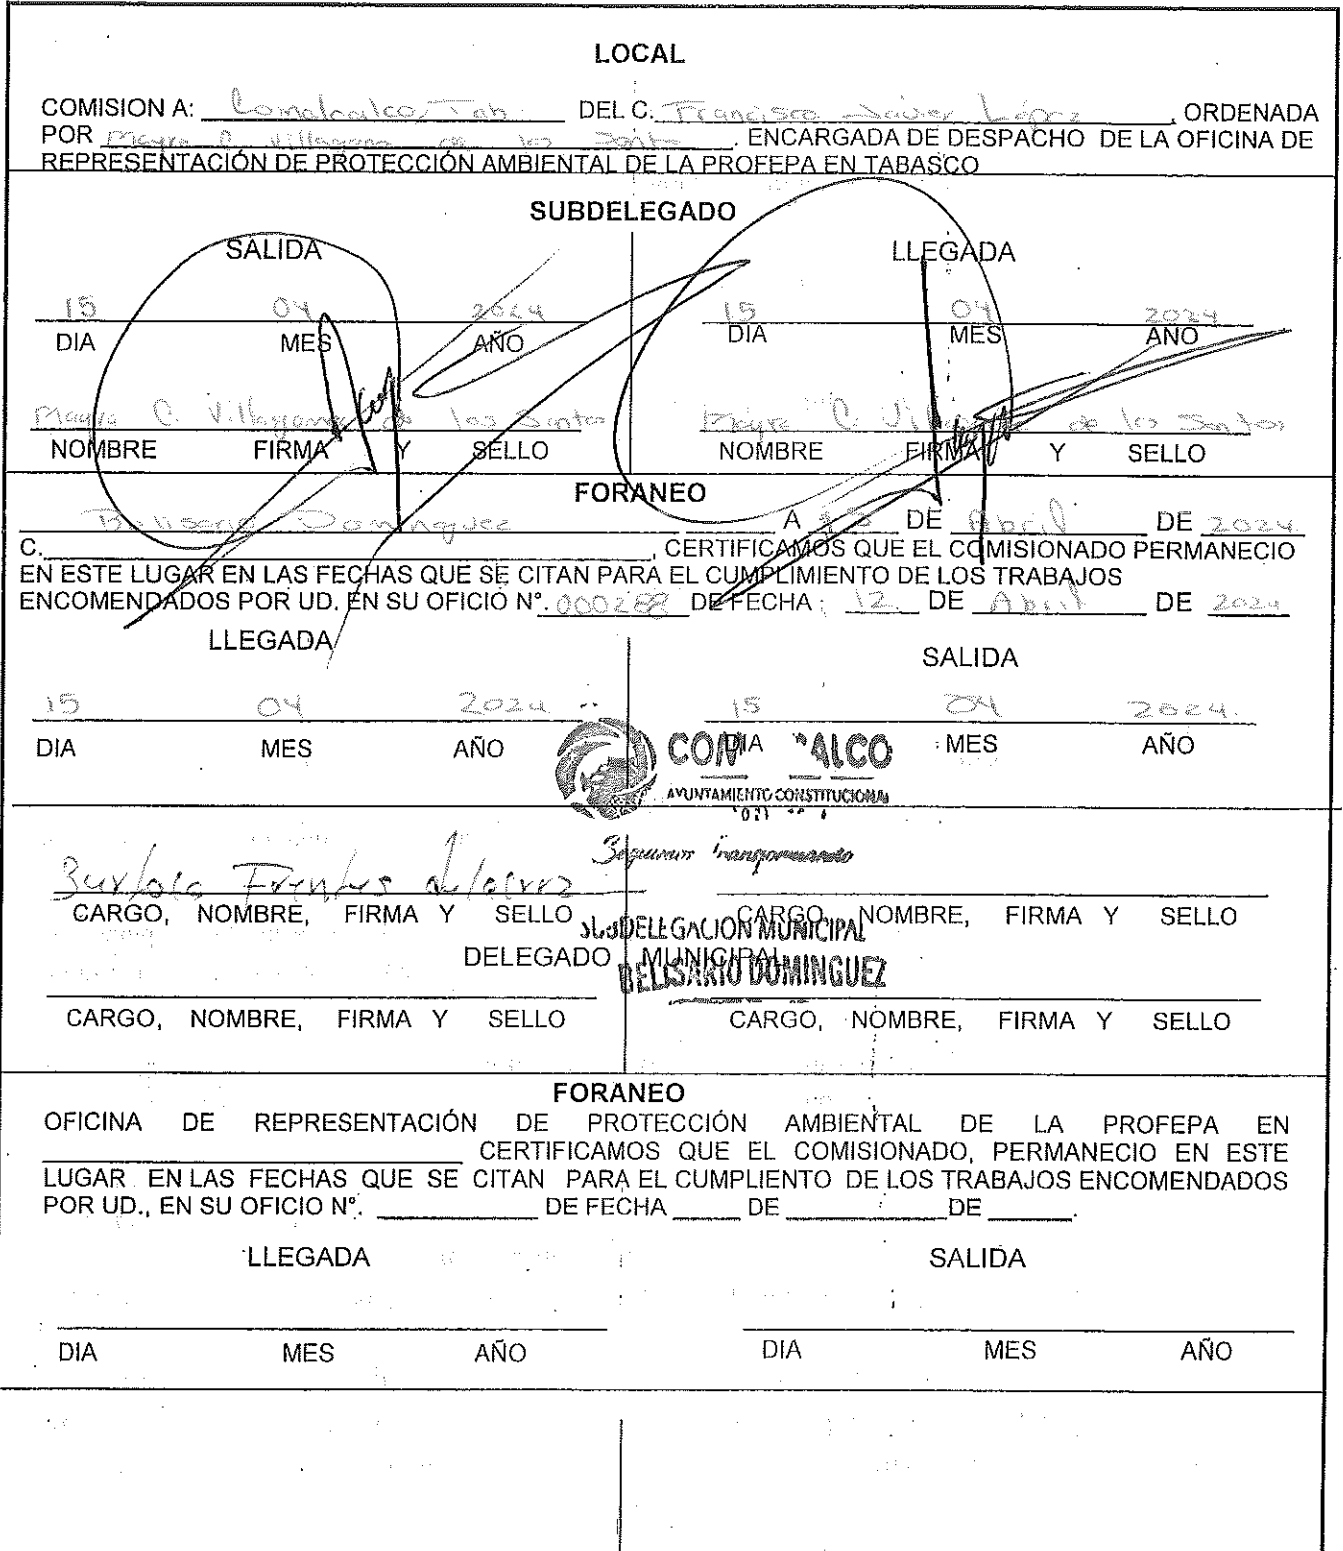 LOCAL
COMISION A: Comalcalco, Tab. DEL C. Francisco Javier López, ORDENADA
POR Mayra C. Villagomez de los Santos. ENCARGADA DE DESPACHO DE LA OFICINA DE
REPRESENTACIÓN DE PROTECCIÓN AMBIENTAL DE LA PROFEPA EN TABASCO
SUBDELEGADO
SALIDA LLEGADA
15 04 2024 15 04 2024
DIA MES AÑO DIA MES AÑO
Mayra C. Villagomez de los Santos Mayra C. de los Santos
NOMBRE FIRMA Y SELLO NOMBRE FIRMA Y SELLO
FORANEO
Belisario Dominguez A 15 DE Abril DE 2024.
C. , CERTIFICAMOS QUE EL COMISIONADO PERMANECIO
EN ESTE LUGAR EN LAS FECHAS QUE SE CITAN PARA EL CUMPLIMIENTO DE LOS TRABAJOS
ENCOMENDADOS POR UD. EN SU OFICIO N°. 000288 DE FECHA : 12 DE Abril DE 2024
LLEGADA SALIDA
15 04 2024 15 04 2024.
DIA MES AÑO DIA MES AÑO
AYUNTAMIENTO CONSTITUCIONAL
CARGO, NOMBRE, FIRMA Y SELLO CARGO, NOMBRE, FIRMA Y SELLO
DELEGACION MUNICIPAL
DELEGADO MUNICIPAL
BELISARIO DOMINGUEZ
CARGO, NOMBRE, FIRMA Y SELLO CARGO, NOMBRE, FIRMA Y SELLO
FORANEO
OFICINA DE REPRESENTACIÓN DE PROTECCIÓN AMBIENTAL DE LA PROFEPA EN
CERTIFICAMOS QUE EL COMISIONADO, PERMANECIO EN ESTE
LUGAR EN LAS FECHAS QUE SE CITAN PARA EL CUMPLIENTO DE LOS TRABAJOS ENCOMENDADOS
POR UD., EN SU OFICIO N°. DE FECHA DE DE .
LLEGADA SALIDA
DIA MES AÑO DIA MES AÑO